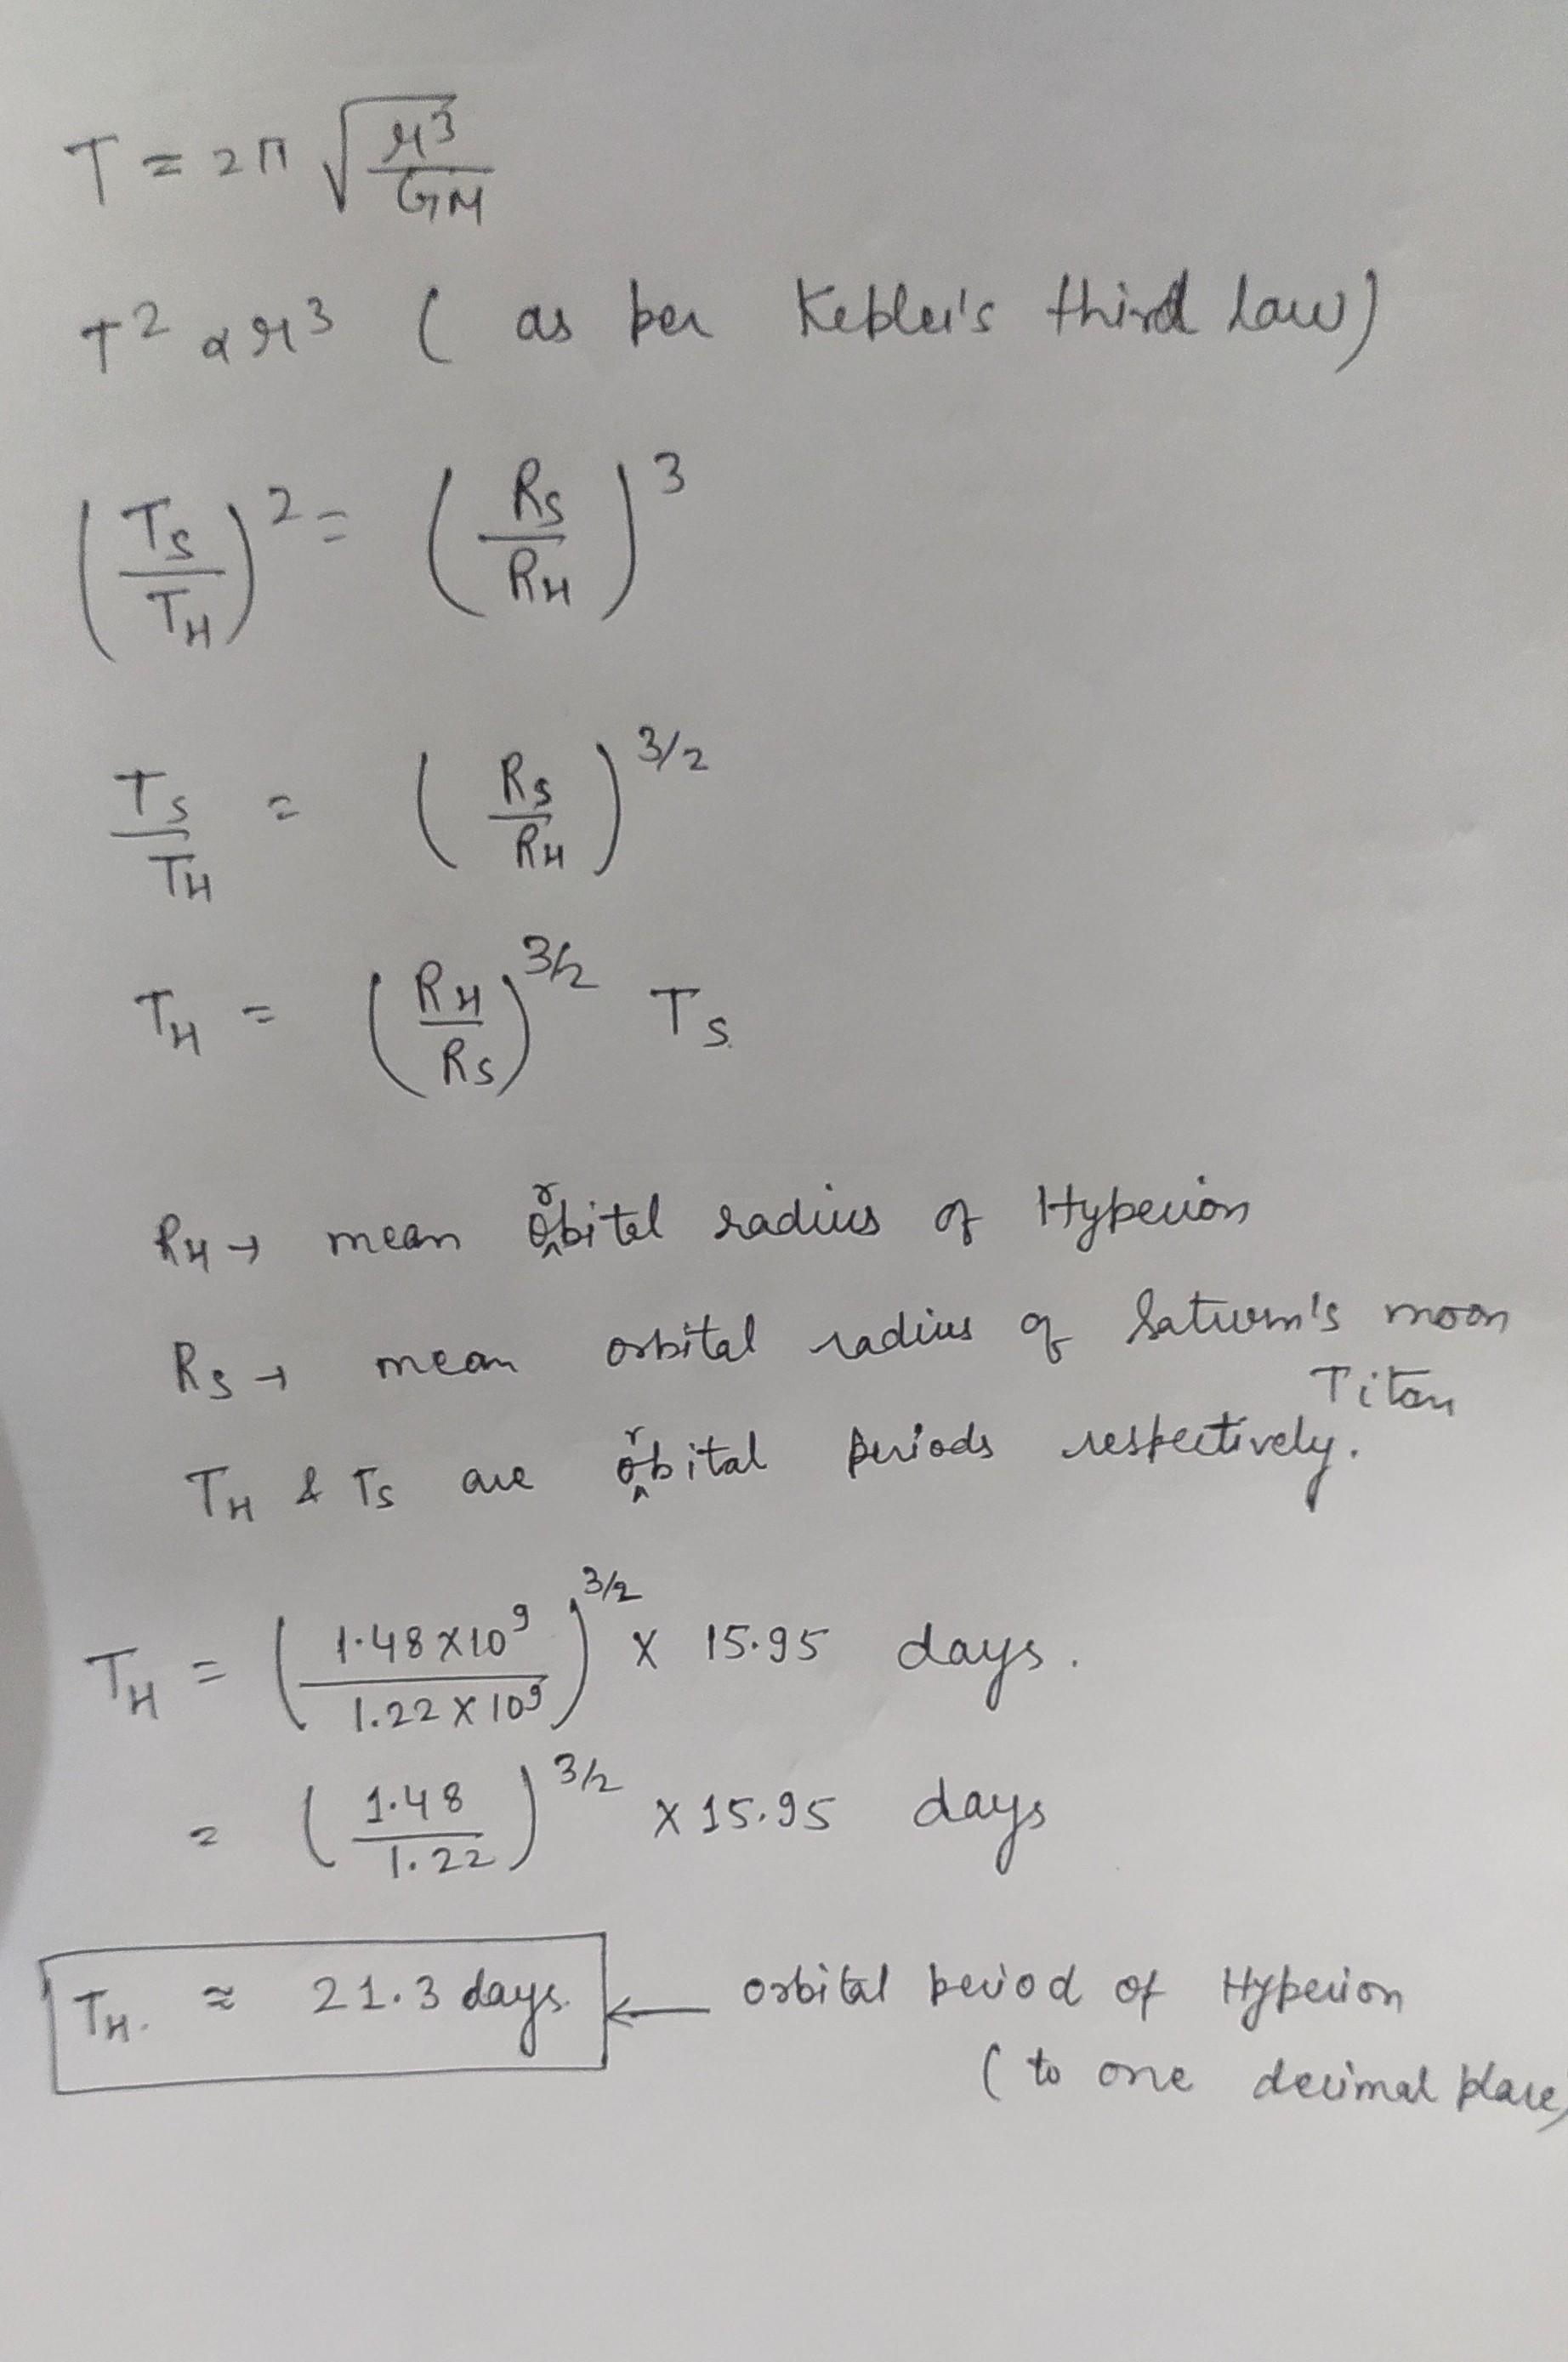 T = 2π √(r³/GM)
T² α r³ ( as per Kepler's third law)
(T_S/T_H)² = (R_S/R_H)³
T_S/T_H = (R_S/R_H)^3/2
T_H = (R_H/R_S)^3/2 T_S.
R_H → mean orbitel radius of Hyperion
R_S → mean orbital radius of Saturn's moon
Titan
T_H & T_S are orbital periods respectively.
T_H = (1.48 × 10⁹/1.22 × 10⁹)^3/2 × 15.95 days.
= (1.48/1.22)^3/2 × 15.95 days
T_H. ≈ 21.3 days. ← orbital period of Hyperion
( to one decimal place)